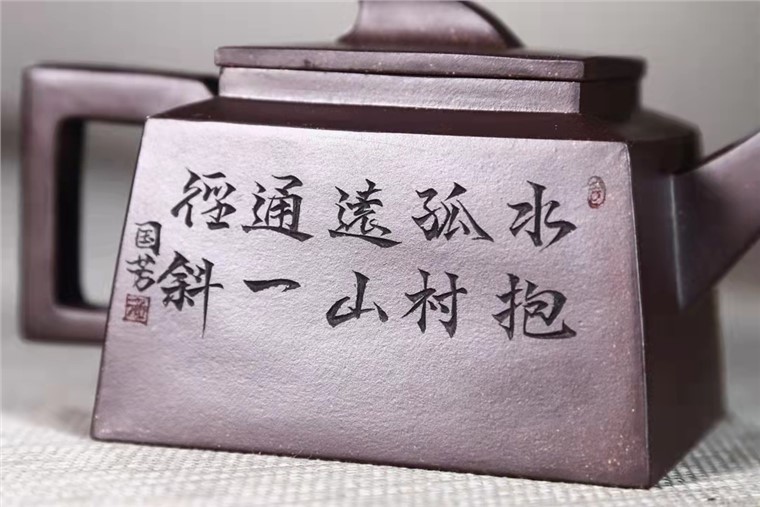 水抱
孤村
遠山
通一
徑斜
国芳